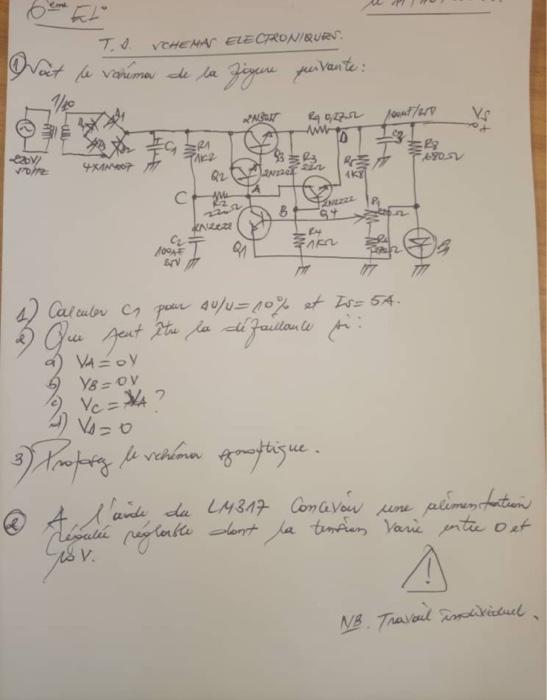 6ème EL°
T.D. SCHEMAS ELECTRONIQUES.
① Soit le schéma de la figure suivante :
1/10
2N3055 R9 0,22Ω 100µF/25V Vs
D1
C1 R1 1K2
Q2 Q3 R3 22Ω
D
R5 1K8
C3
R8 680Ω
220V/ 50HZ 4X1N4007
2N2222
C R2 22Ω A
2N2222
B Q4 P1
2N2222
C2 100µF 25V
Q1
R4 1KΩ
1) Calculer C1 pour ΔU/U = 10% et Is = 5A.
2) Que peut être la défaillance si :
a) VA = 0V
b) VB = 0V
c) VC = VA ?
d) VD = 0
3) Proposez le schéma synoptique.
② A l'aide du LM317 Concevoir une alimentation
régulée réglable dont la tension varie entre 0 et
V.
!
NB. Travail individuel.